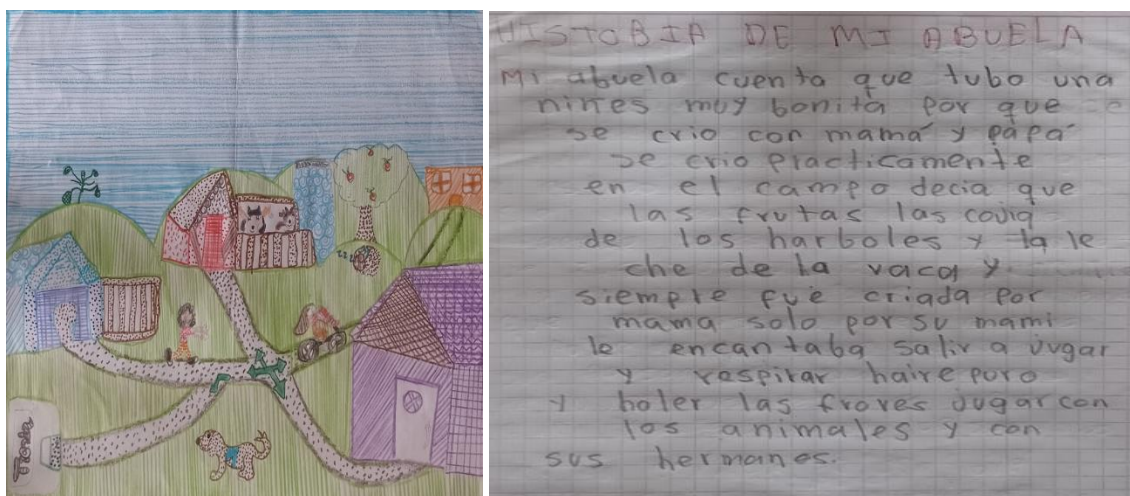 Tienda
HISTOBIA DE MI ABUELA
Mi abuela cuenta que tubo una
niñes muy bonita por que
se crio con mamá y pápá
se crio practicamente
en el campo decia que
las frutas las covia
de los harboles y la le
che de la vaca y
siempre fue criada por
mama solo por su mami
le encantaba salir a jugar
y respirar haire puro
y holer las frores jugar con
los animales y con
sus hermanos.